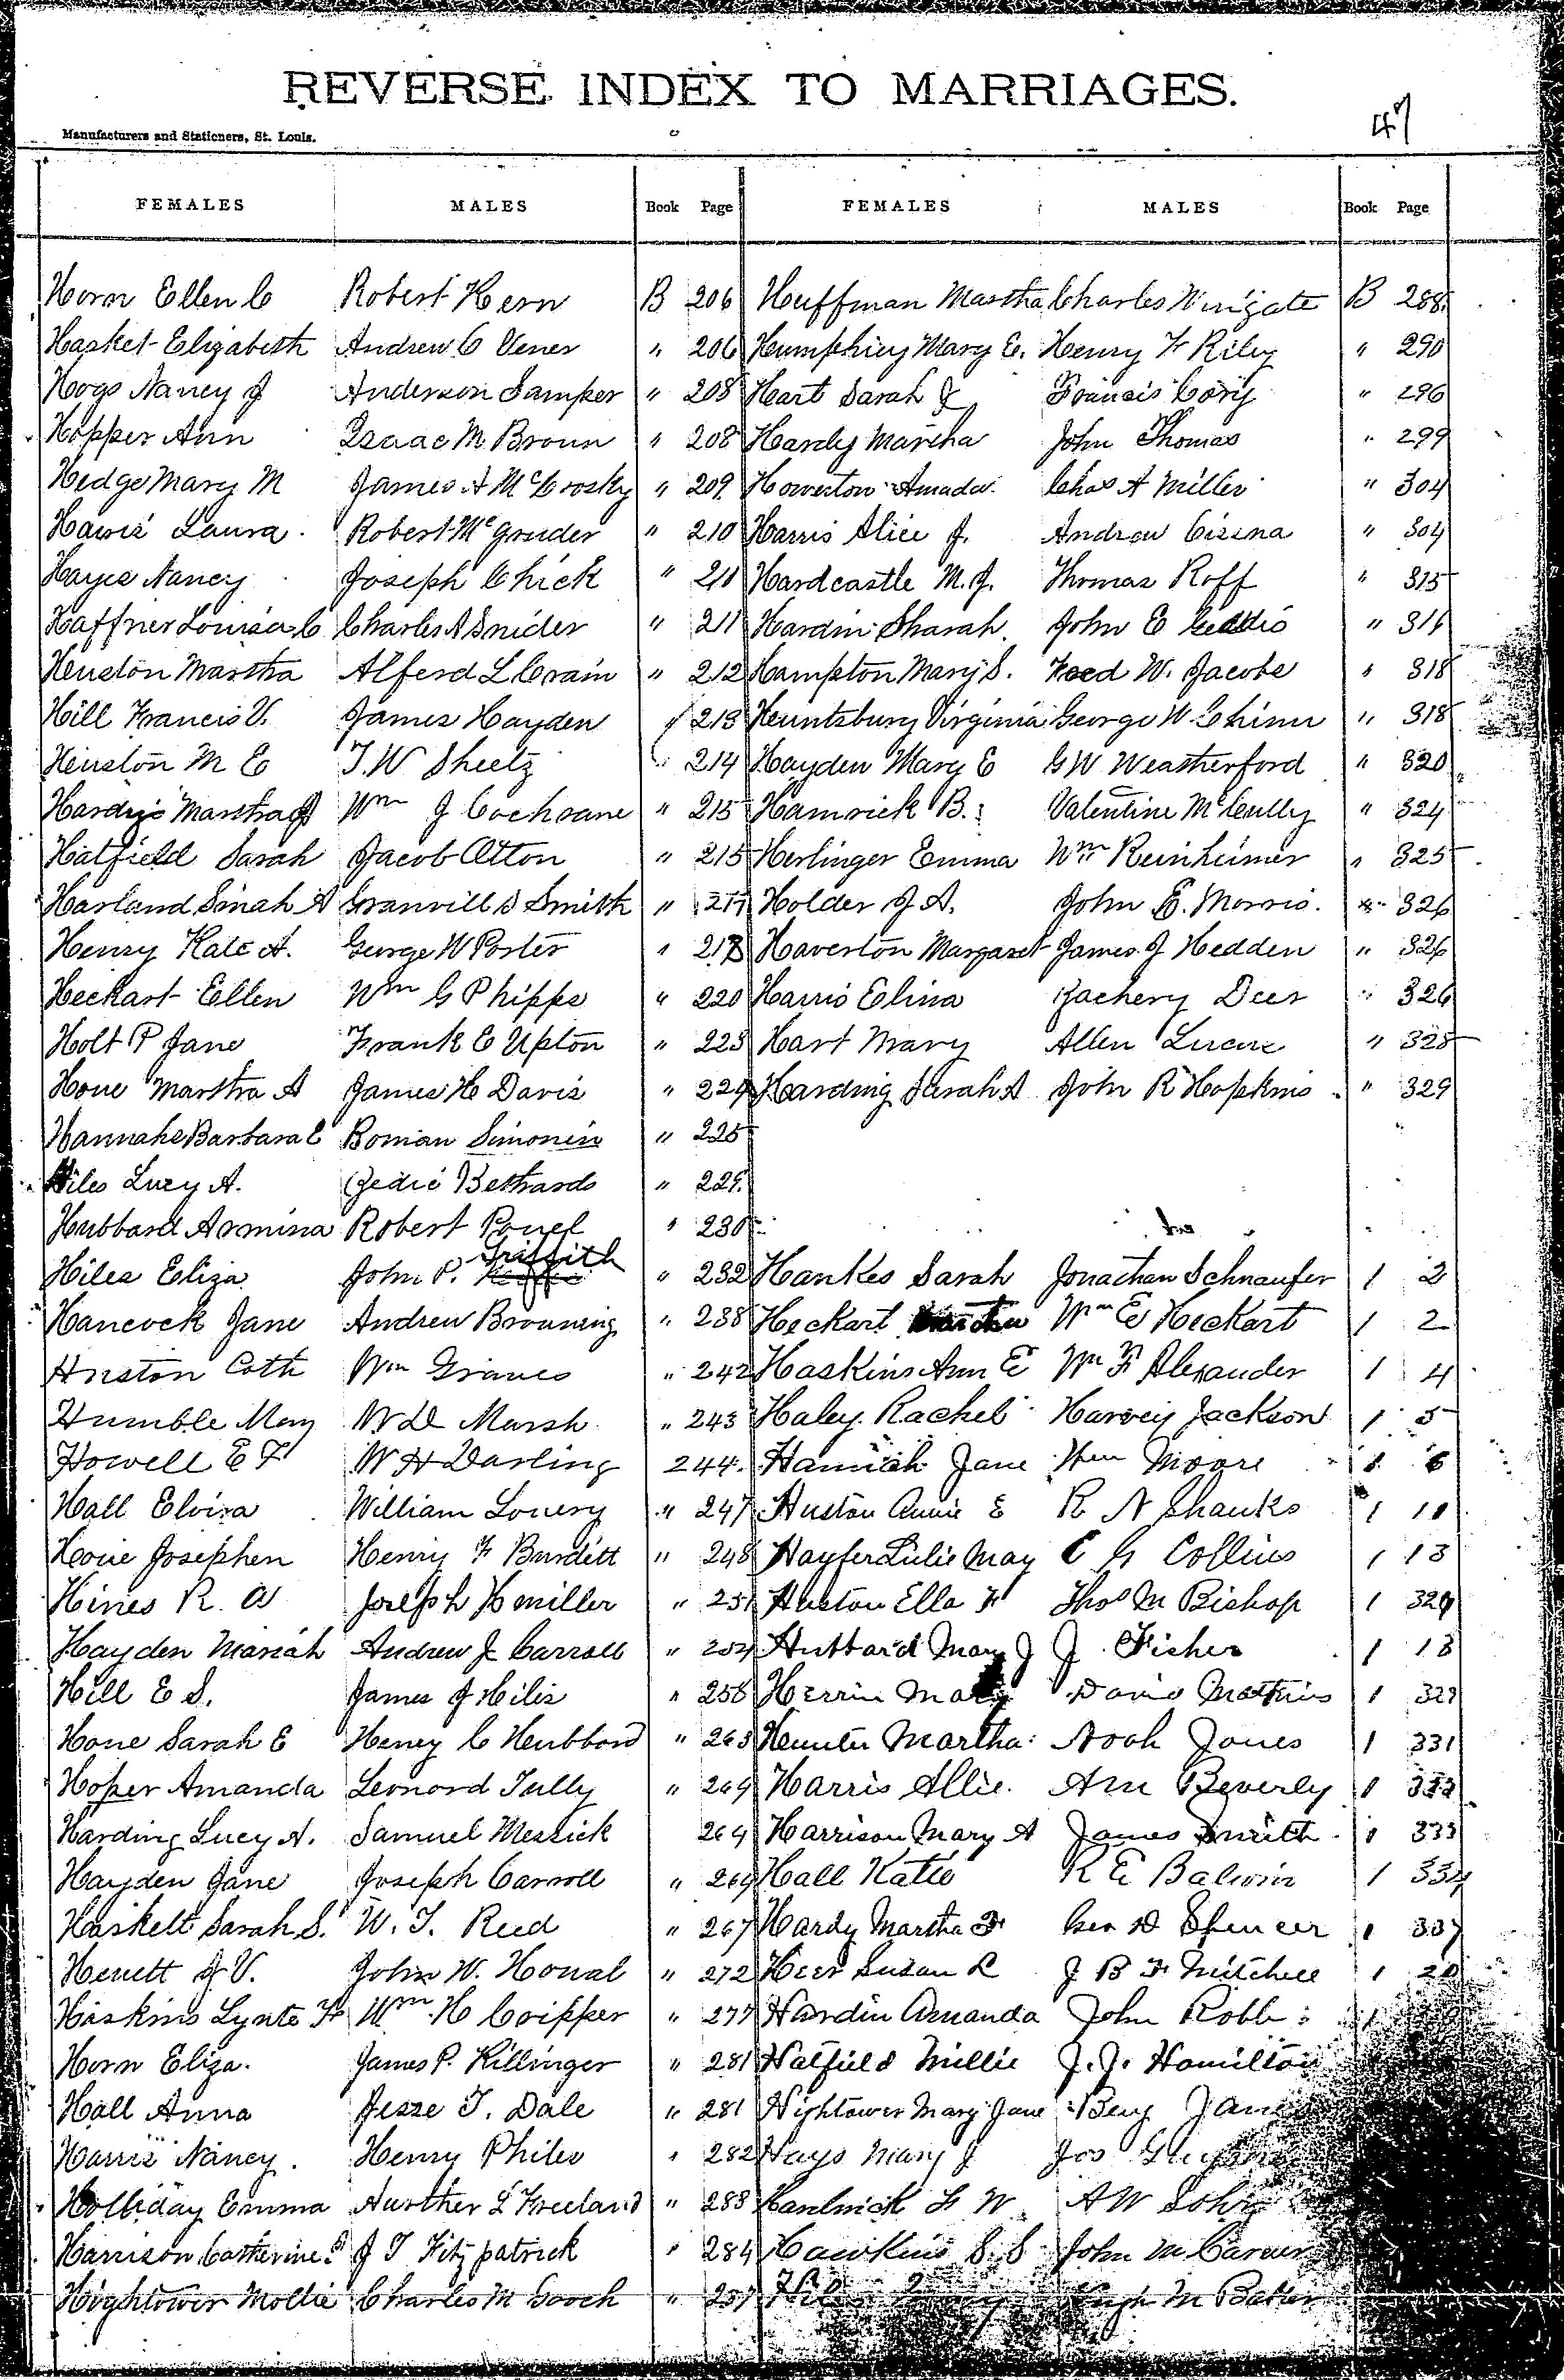 REVERSE INDEX TO MARRIAGES.
47
Manufacturers and Stationers, St. Louis.
FEMALES MALES Book Page FEMALES MALES Book Page
Horn Ellen C Robert Hern B 206 Huffman Martha Charles Wingate B 288
Hasket Elizabeth Andrew C Vener " 206 Humphrey Mary E. Henry F Riley " 290
Hogs Nancy J Anderson Samper " 208 Hart Sarah J Francis Cory " 296
Hopper Ann Isaac M Broun " 208 Hardy Martha John Thomas " 299
Hedge Mary M James A McCrosky " 209 Howerton Amada Chas A Miller " 304
Hawis Laura Robert McGruder " 210 Harris Alice J. Andrew Cisena " 304
Hayes Nancy Joseph Chick " 211 Hardcastle M. J. Thomas Roff " 315
Haffner Louisa C Charles A Snider " 211 Hardin Sharah John E " 316
Heuston Martha Alferd L Crain " 212 Hampton Mary S. Fred W. Jacobs " 318
Hill Francis V. James Hayden " 213 Huntsbury Virginia George W. Chinn " 318
Heuston M E T. W Sheetz " 214 Hayden Mary E G W Weatherford " 320
Hardy Marthas J Wm J Cochrane " 215 Hamrick B. Valentine McCully " 324
Hatfield Sarah Jacob Otton " 215 Herlinger Emma Wm Reinheimer " 325
Harland Sinah A Granvill D Smith " 217 Holder J A. John E. Morris. " 326
Henry Kate A. George W Porter " 218 Haverton Margaret James J Hedden " 326
Heckart Ellen Wm G Phipps " 220 Harris Elina Zachery Deer " 326
Holt P Jane Frank E Upton " 223 Hart Mary Allen Lucas " 328
Hone Marthra A James H Davis " 224 Harding Sarah A John R Hopkins " 329
Hannahs Barbara E Roman Simonin " 225
Hiles Lucy A. Zedic Bethards " 229.
Hubbard Armina Robert Pouel " 230
Hiles Eliza John P. Griffith " 232 Hankes Sarah Jonathan Schnaufer 1 2
Hancock Jane Andrew Brouning " 238 Heckart Wm E Heckart 1 2
Huston Cath Wm Graves " 242 Haskins Ann E Wm F Alexander 1 4
Humble May W. D Marsh " 243 Haley Rachel Harvey Jackson 1 5
Howell E F W H Darling 244. Hannah Jane Wm Moore 1 6
Hall Elvira William Lowery " 247 Huston Annie E R N Shanks 1 10
Hone Josephen Henry F Burditt " 248 Hayfer Lulie May C G Collins 1 13
Hines R. A Joseph H miller " 251 Huston Ella F Thos M Bishop 1 329
Hayden Mariah Andrew J Carroll " 254 Hubbard Mary J J. Fisher 1 18
Hill E S. James J Hiles " 258 Herrin Mary David Mathis 1 329
Hone Sarah E Heney C Hubbard " 263 Hunter Martha Noah Jones 1 331
Hoper Amanda Leonord Tully " 264 Harris Allie. Am Beverly 1 333
Harding Lucy A. Samuel Messick 264 Harrison Mary A James Smith 1 333
Hayden Jane Joseph Carroll " 264 Hall Katie R E Balwin 1 334
Haskett Sarah S. W. T. Reed " 267 Hardy Martha F Geo D Spencer 1 337
Heuett J V. John W. Honal " 272 Heer Susan R J B F Mitchell 1 20
Haskins Lynte F Wm H Cripper " 277 Hardin Amanda John Robb 1
Horn Eliza. James P. Killinger " 281 Hatfield Millie J. J. Hamilton
Hall Anna Jesse T. Dale " 281 Hightower Mary Jane Benj
Harris Nancy. Henry Philes " 282 Hays Mary J Jos
Holliday Emma Aurther L Freeland " 283 Hardwick F W A W
Harrison Catherine J T Fitzpatrick " 284 Hawkins S. S John M Carver
Hightower Mollie Charles M Gooch " 287 Hugh M Baker